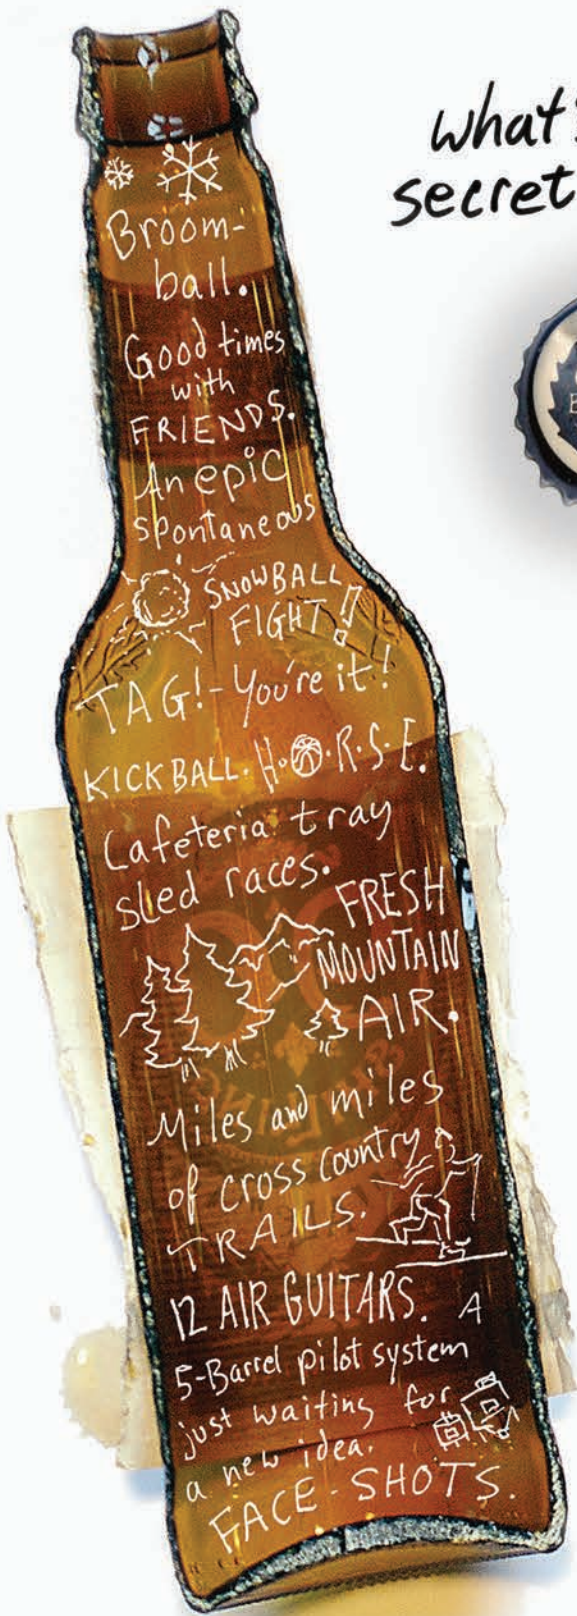 what's
secret
Broom-
ball.
Good times
with
FRIENDS.
An epic
spontaneous
SNOWBALL
FIGHT!
TAG! - You're it!
KICKBALL. H.O.R.S.E.
Cafeteria tray
sled races.
FRESH
MOUNTAIN
AIR.
Miles and miles
of cross country
TRAILS.
12 AIR GUITARS. A
5-Barrel pilot system
just waiting for
a new idea.
FACE-SHOTS.